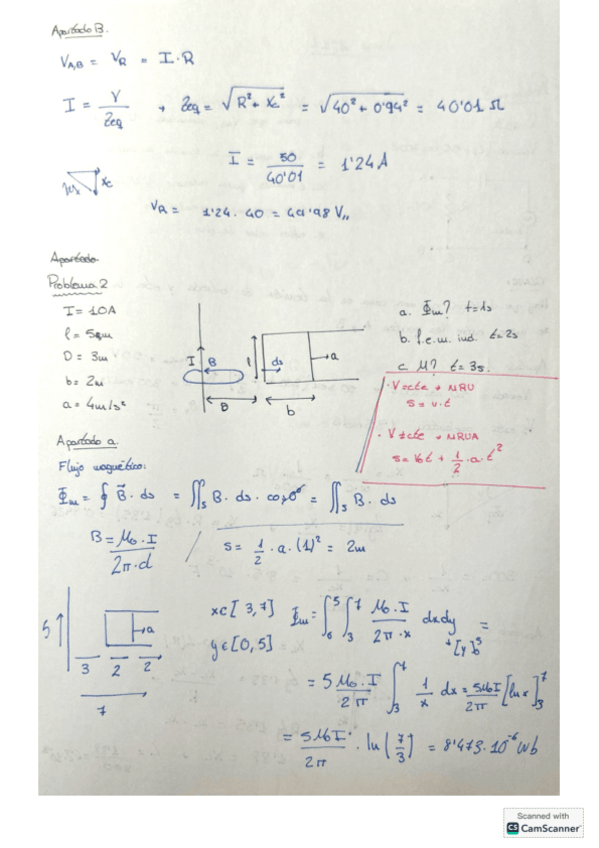 Apartado B.
V_A,B = V_R = I·R
I = V/Zeq → Zeq = √(R² + Xc²) = √(40² + 0'94²) = 40'01 Ω
I = 50/40'01 = 1'24 A
Xc
V_R = 1'24 · 40 = 49'98 V,,
Apartado
Problema 2
I = 10A
l = 5m
D = 3m
b = 2m
a = 4m/s²
I B l ds a
B b
a. Φm? t=1s
b. f.e.m. ind. t=2s
c. M? t=3s.
· V=cte → MRU
s = v·t
· V≠cte → MRUA
s = V₀t + 1/2 · a · t²
Apartado a.
Flujo magnético:
Φm = ∮ B⃗ · ds = ∬s B · ds · cos0° = ∬s B · ds
B = μ₀·I / 2π·d / s = 1/2 · a · (1)² = 2m
5 a
3 2 2
7
x∈[3,7] Φm = ∫₀⁵ ∫₃⁷ μ₀·I / 2π·x dxdy =
y∈[0,5] [y]₀⁵
= 5 μ₀·I / 2π ∫₃⁷ 1/x dx = 5μ₀I / 2π [ln x]₃⁷
= 5μ₀I / 2π · ln(7/3) = 8'473·10⁻⁶ Wb
Scanned with
CS CamScanner